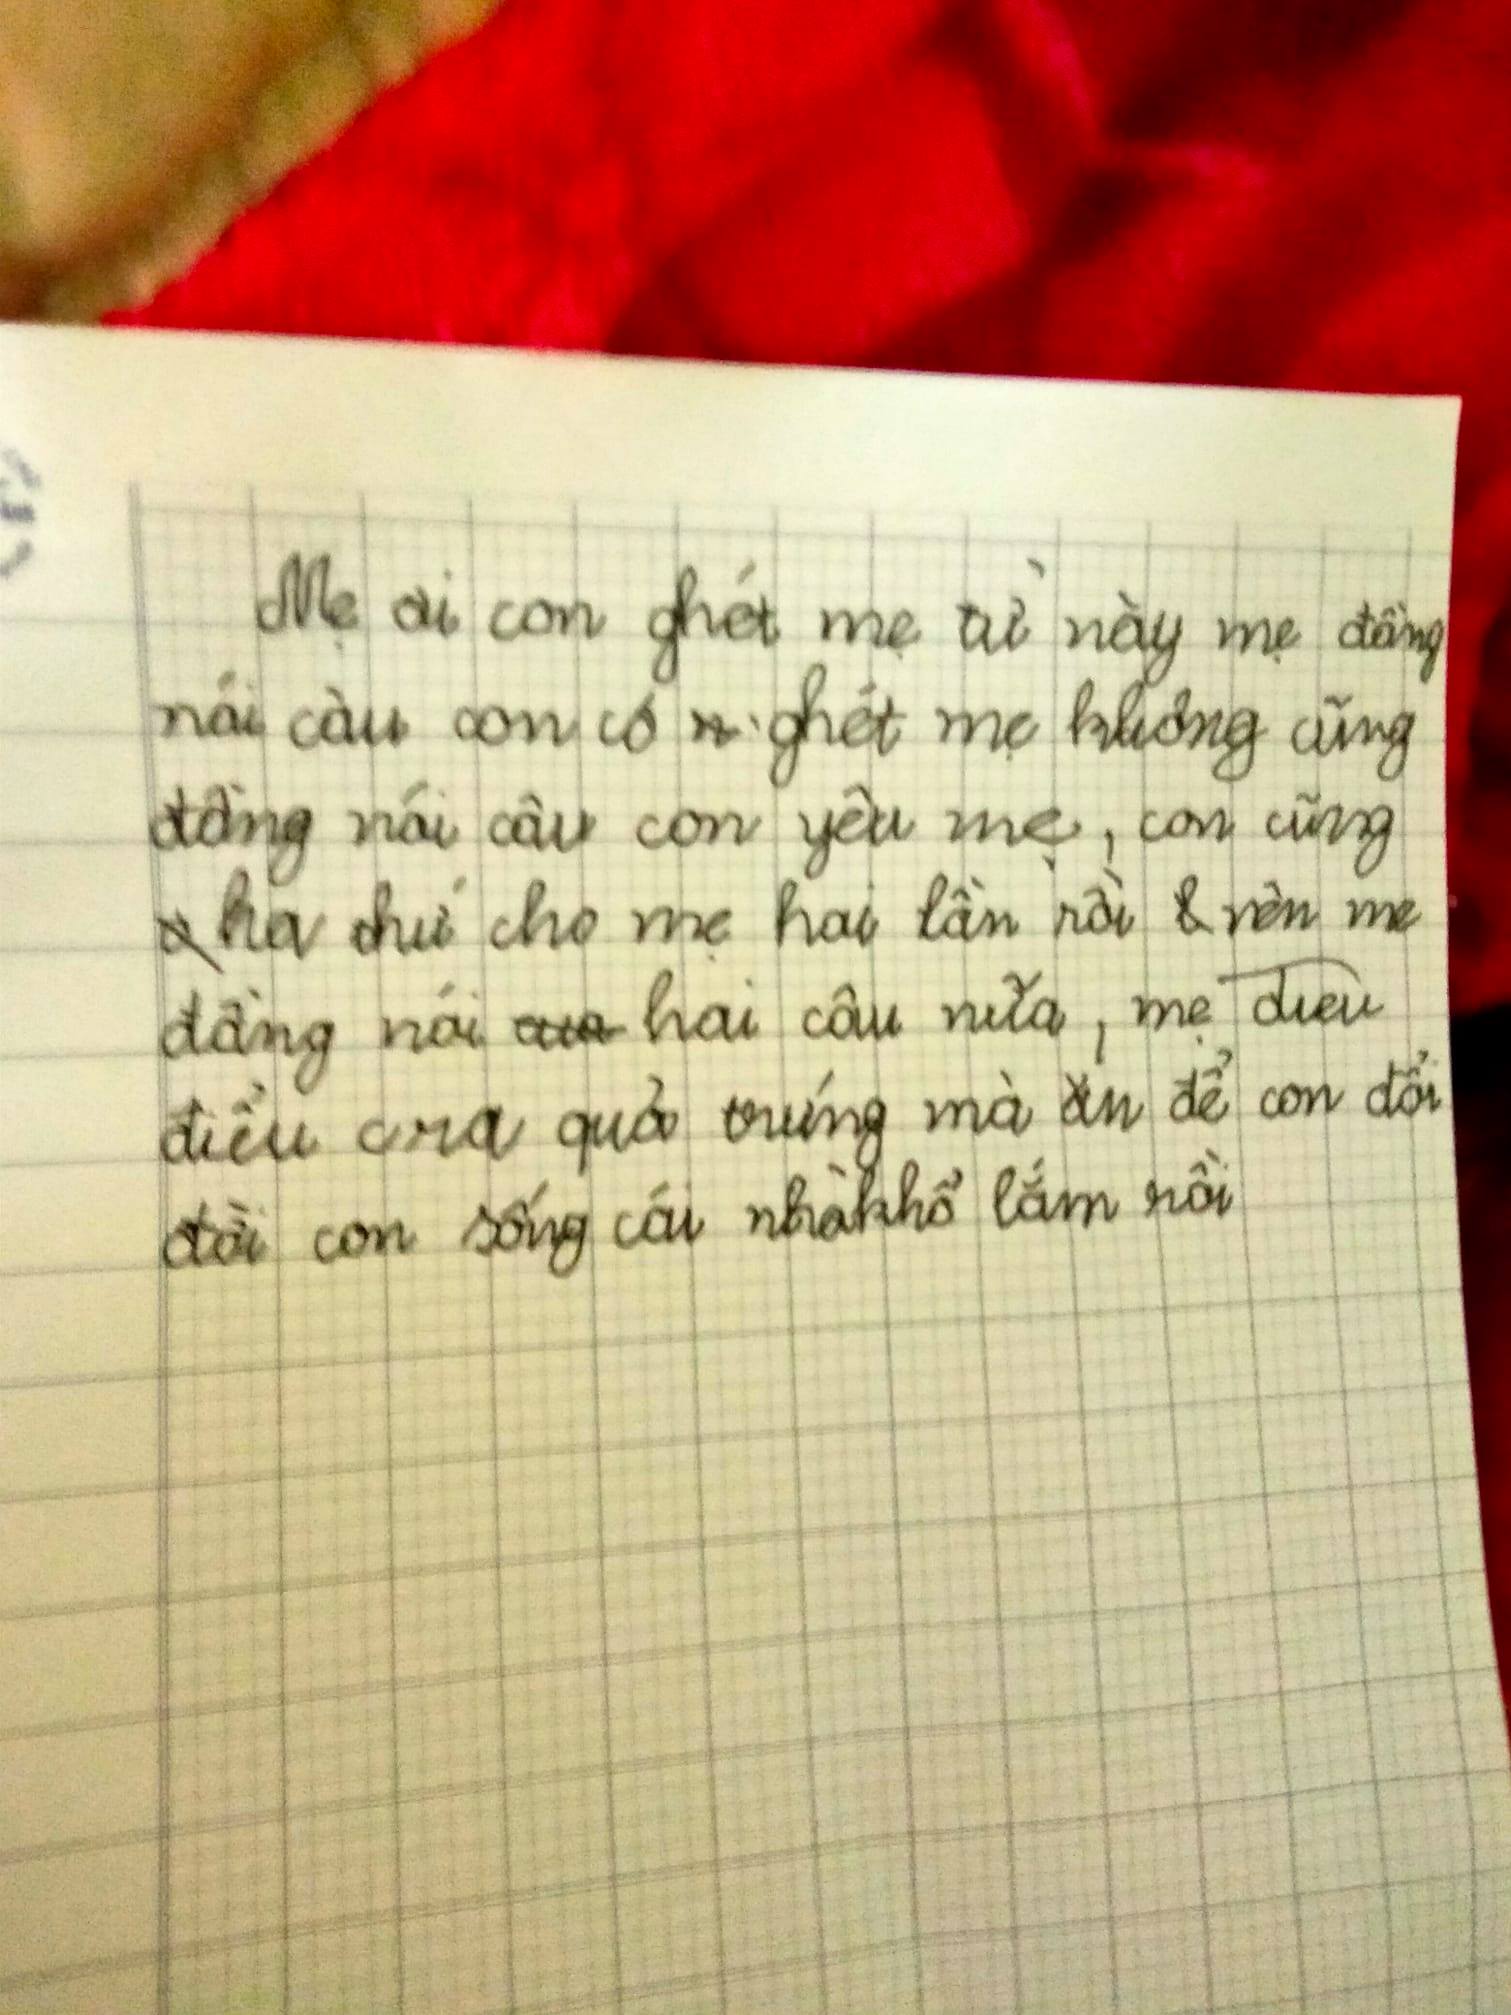 Mẹ ơi con ghét mẹ từ này mẹ đừng
nói câu con có ghét mẹ không cũng
đừng nói câu con yêu mẹ, con cũng
tha thứ cho mẹ hai lần rồi nên mẹ
đừng nói hai câu nữa, mẹ
điều quả trứng mà ăn để con đổi
đời con sống cái nhà khổ lắm rồi